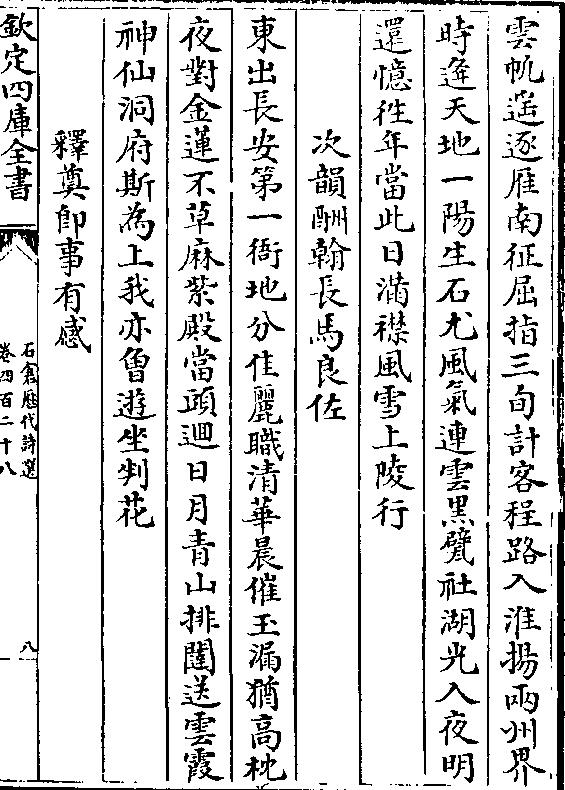 雲帆遥逐雁南征屈指三旬計客程路入淮揚兩州界
時逢天地一陽生石尤風氣連雲黑甓社湖光入夜明
還憶徃年當此日滿襟風雪上陵行
次韻酬翰長馬良佐
東出長安第一衙地分佳麗職清華晨催玉漏猶高枕
夜對金蓮不草麻紫殿當頭迴日月青山排闥送雲霞
神仙洞府斯為上我亦曾遊坐判花
釋奠即事有感
欽定四庫全書
石倉歷代詩選
卷四百二十八
八